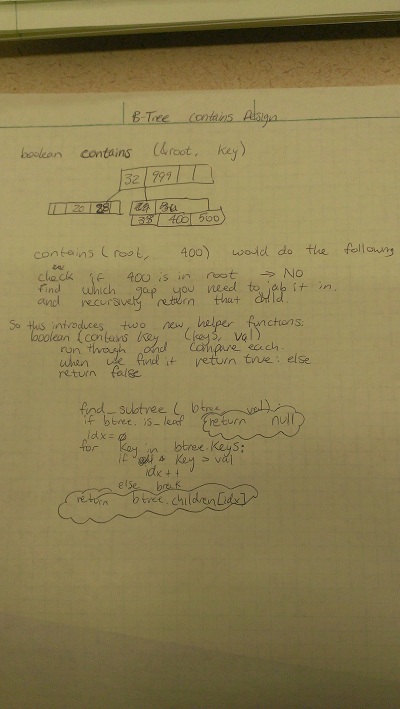 B-Tree contains Design
boolean contains (&root, key)
32 999
1 20 28
33 400 500
contains (root, 400) would do the following
check if 400 is in root → NO
find which gap you need to jab it in.
and recursively return that child.
So this introduces two new helper functions:
boolean contains key (keys, val)
run through and compare each.
when we find it return true: else
return false
find_subtree (btree, val):
if btree.is_leaf return null
idx=0
for key in btree.keys:
if key > val
idx++
else break
return btree.children[idx]